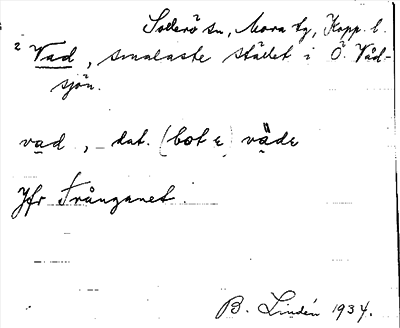 Sollerö sn, Mora tg, Kopp. l.
2 Vad, smalaste stället i Ö. Våd-
sjön.
vad, dat. (bot ε) väde
Jfr Trånganet.
B. Lindén 1934.